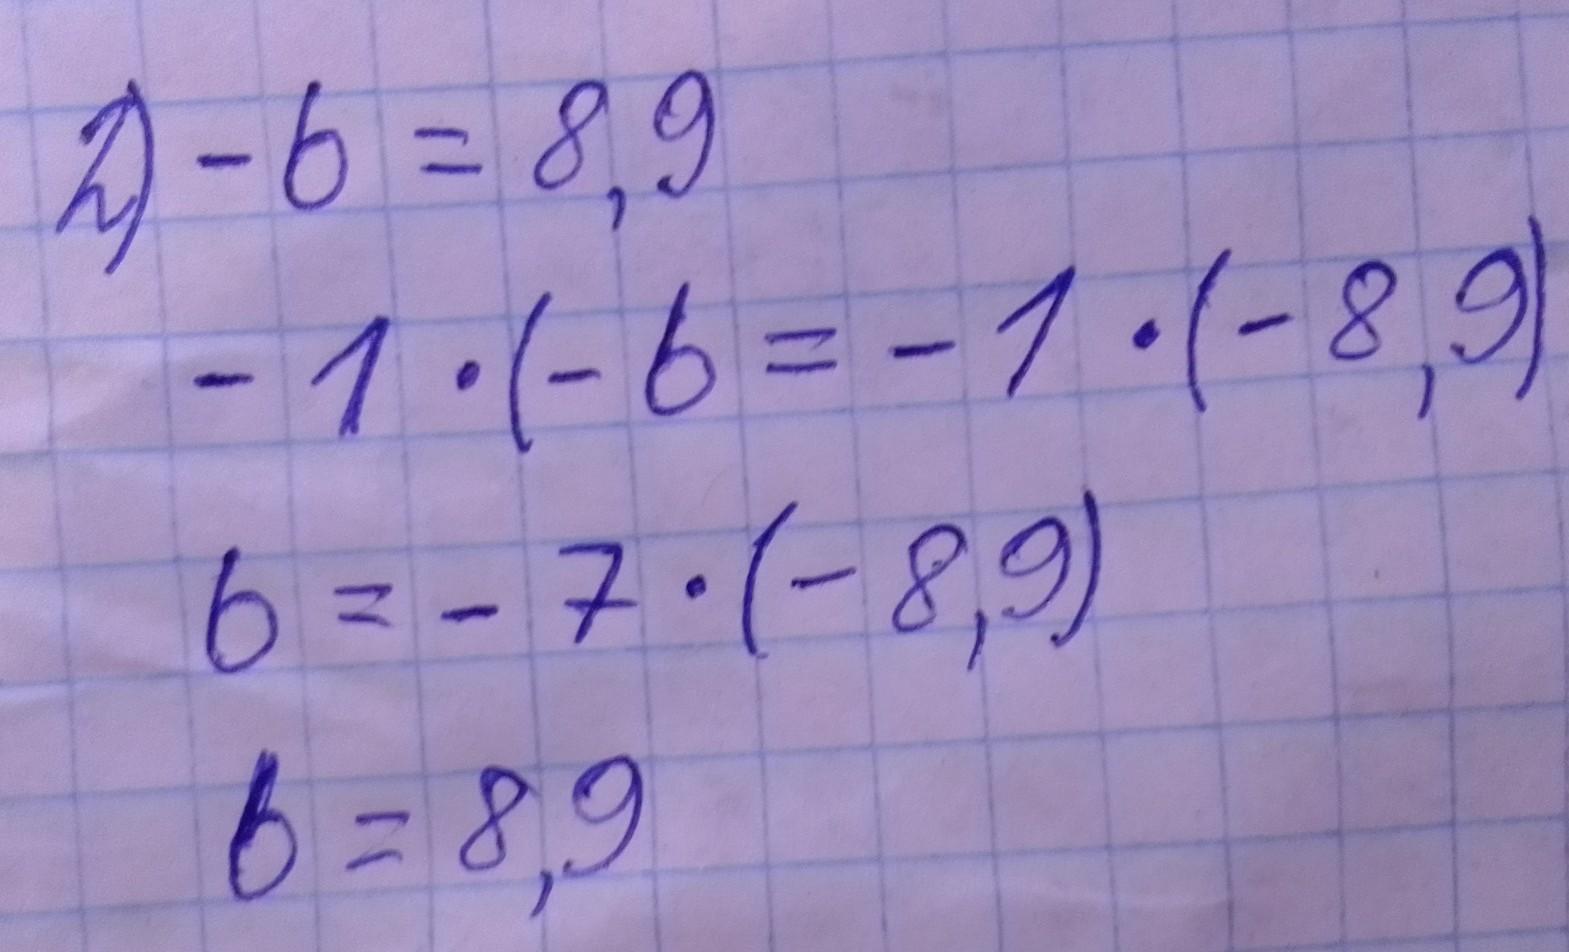 2) - b = 8,9
- 1 · (- b = - 1 · (- 8,9)
b = - 7 · (- 8,9)
b = 8,9